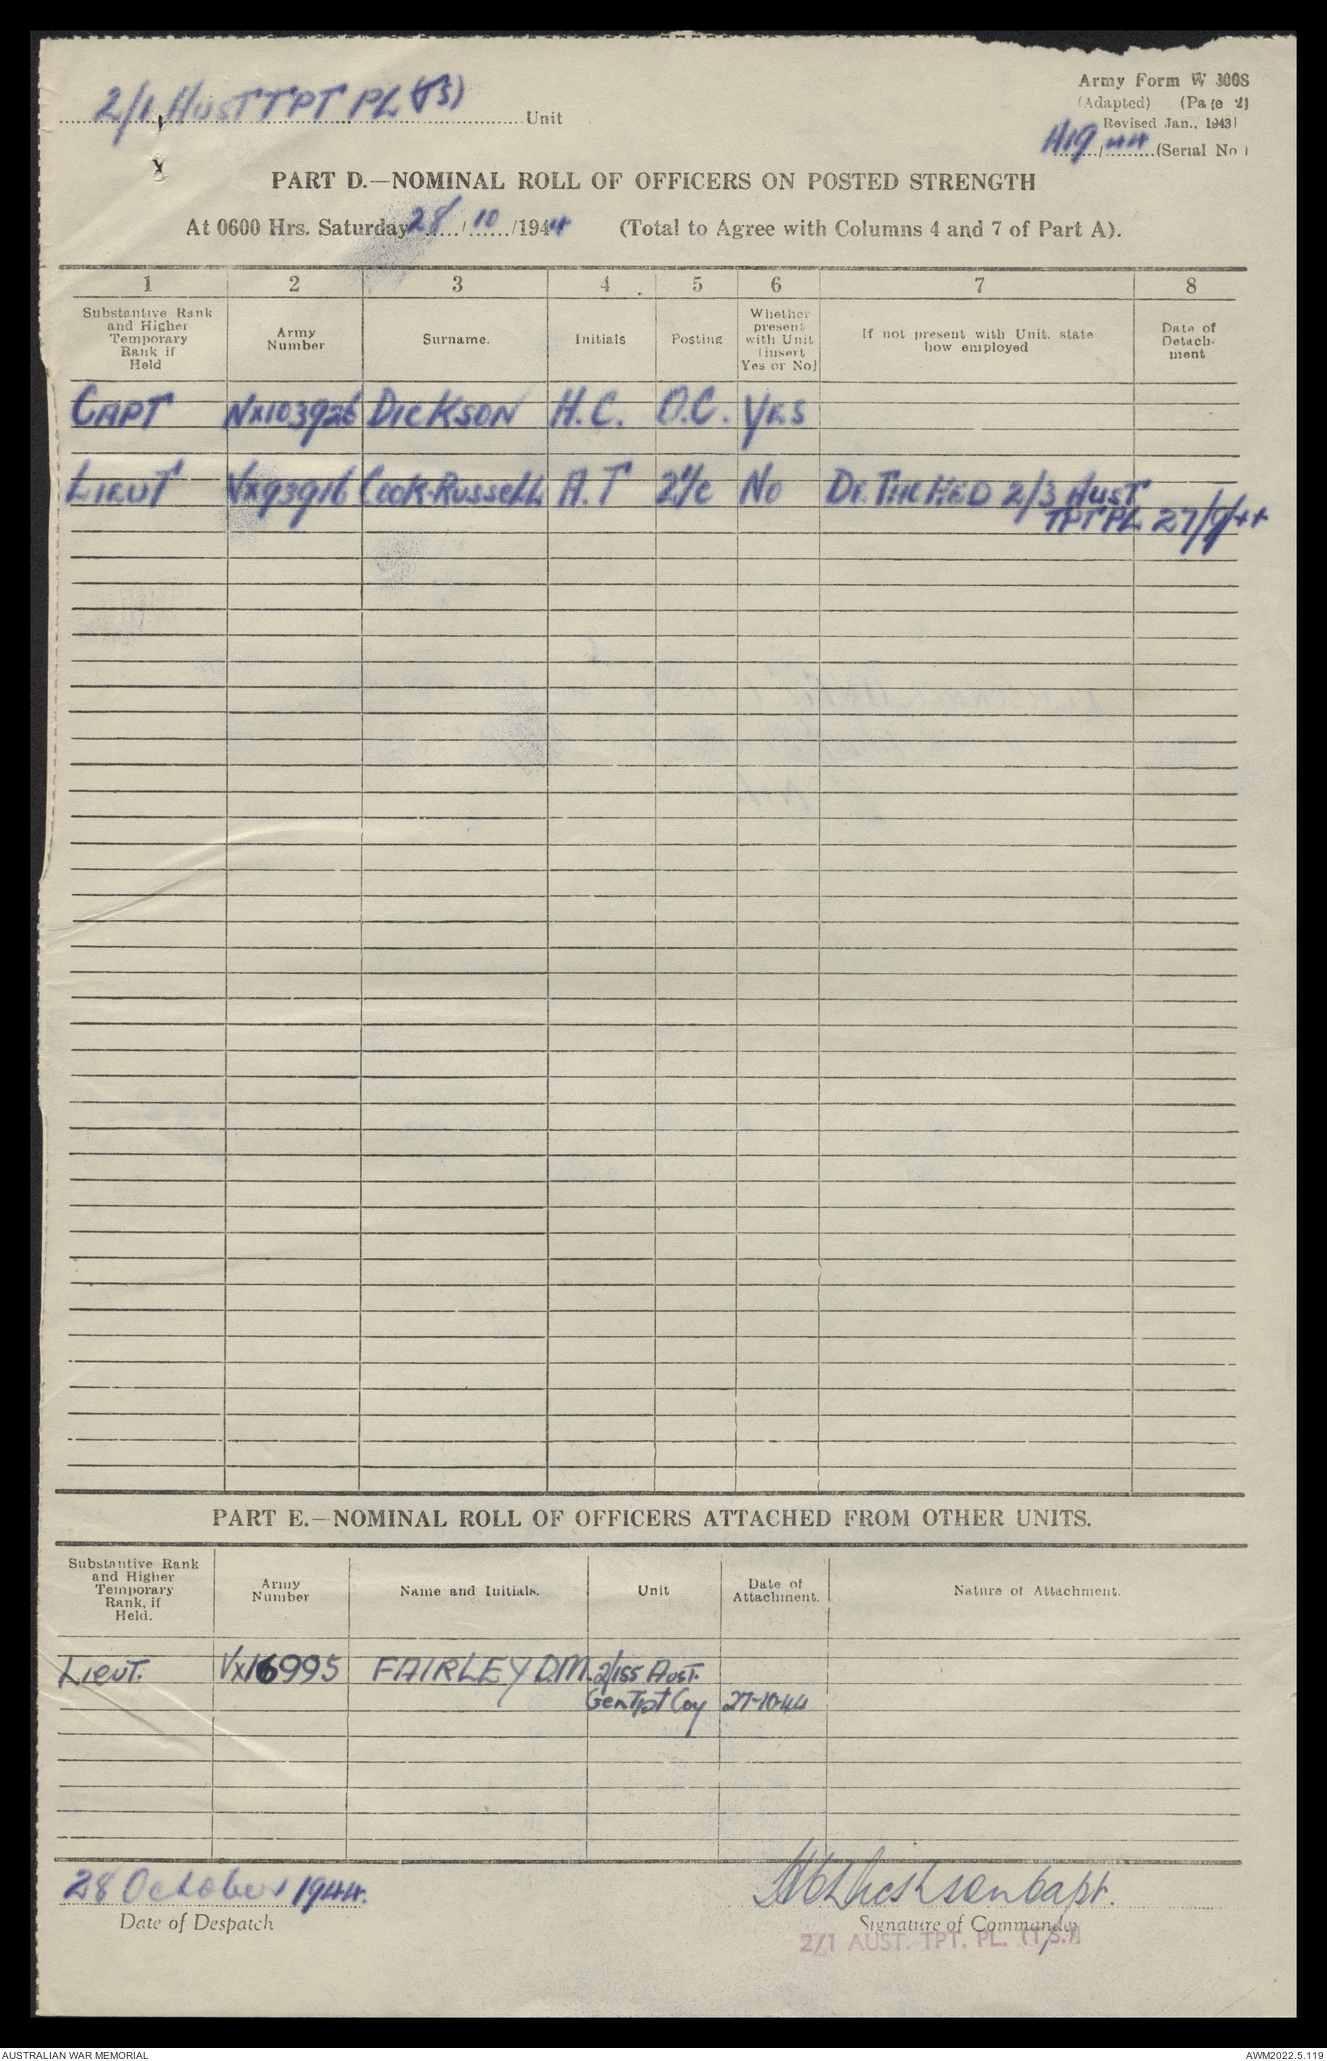 2/1 AUST TPT PL (TS) Unit
Army Form W 3008
(Adapted) (Page 2)
Revised Jan., 1943)
(Serial No.)
PART D.—NOMINAL ROLL OF OFFICERS ON POSTED STRENGTH
At 0600 Hrs. Saturday 28/10/1944 (Total to Agree with Columns 4 and 7 of Part A).
1 2 3 4 5 6 7 8
Substantive Rank and Higher Temporary Rank if Held
Army Number
Surname.
Initials
Posting
Whether present with Unit (insert Yes or No)
If not present with Unit. state how employed
Date of Detachment
CAPT NX103926 DICKSON H.C. O.C. YES
LIEUT VX93916 COOK-RUSSELL A.T 2i/c No DETACHED 2/3 AUST
TPT PL 27/9/44
PART E.—NOMINAL ROLL OF OFFICERS ATTACHED FROM OTHER UNITS.
Substantive Rank and Higher Temporary Rank, if Held.
Army Number
Name and Initials.
Unit
Date of Attachment.
Nature of Attachment.
LIEUT. VX16995 FAIRLEY D.M. 2/155 Aust.
Gen Tpt Coy 27-10-44
28 October 1944.
Date of Despatch
HC Dickson Capt.
Signature of Commander
2/1 AUST. TPT. PL. (T.S.)
AUSTRALIAN WAR MEMORIAL
AWM2022.5.119